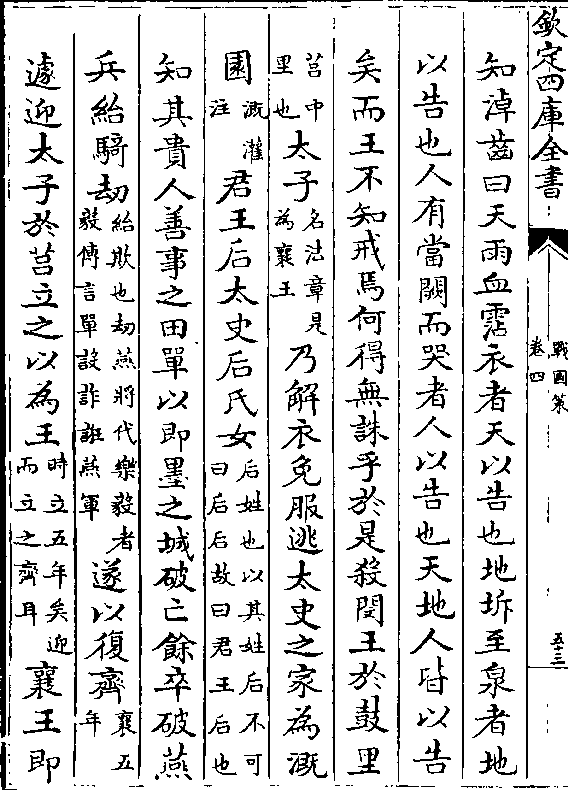 欽定四庫全書
戰國策
卷四
五十三
知淖齒曰天雨血霑衣者天以告也地坼至泉者地
以告也人有當闕而哭者人以告也天地人皆以告
矣而王不知戒焉何得無誅乎於是殺閔王於鼓里
莒中里也太子名法章是為襄王乃解衣免服逃太史之家為溉
園溉灌注君王后太史后氏女后姓也以其姓后不可曰后后故曰君王后也
知其貴人善事之田單以即墨之城破亡餘卒破燕
兵紿騎劫紿欺也劫燕將代樂毅者毅傳言單設詐誑燕軍遂以復齊襄五年
遽迎太子於莒立之以為王時立五年矣迎而立之齊耳襄王即